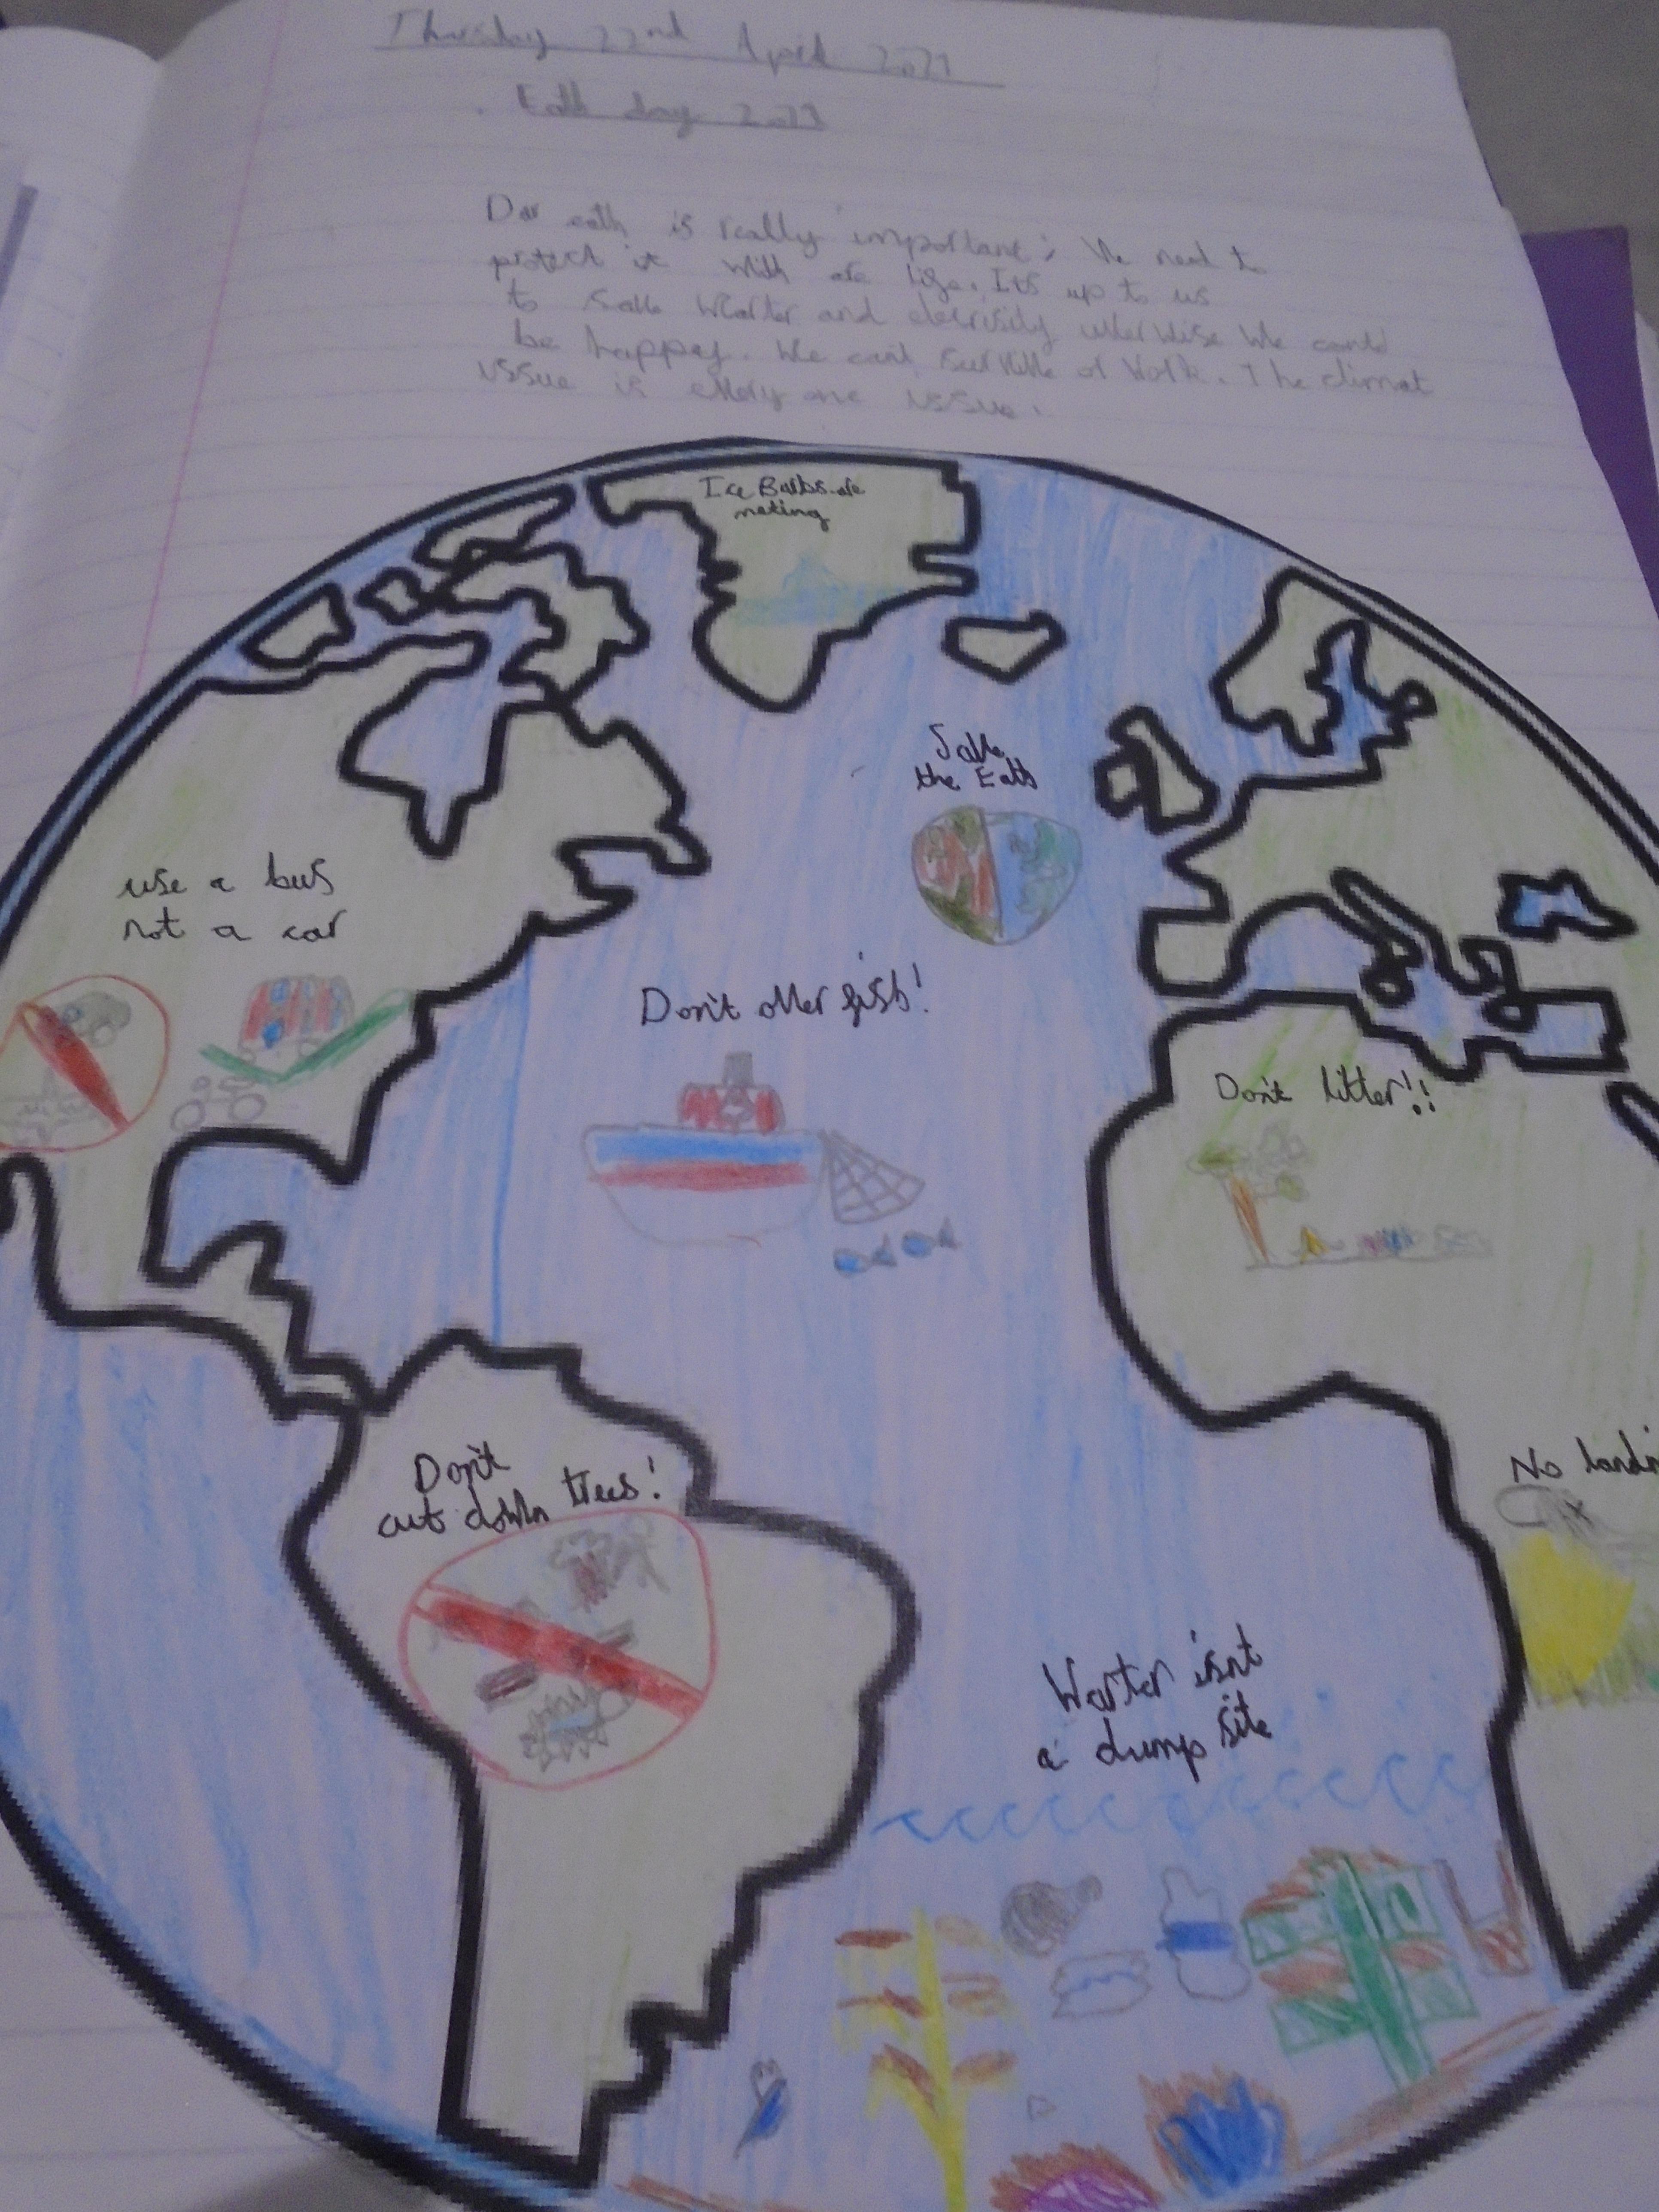 Thursday 22nd April 2021
Eath day 2021
Our eath is really important; We need to
protect it with are life. Its up to us
to save warter and elecrisity utherwise we could
be happey. We cant survive of work. The climat
issue is every one issue.
Ice Barbs are
meting
Save
the Eath
use a bus
not a car
Don't over fish!
Don't litter!!
Don't
cut down trees!
No
Warter isnt
a dump site